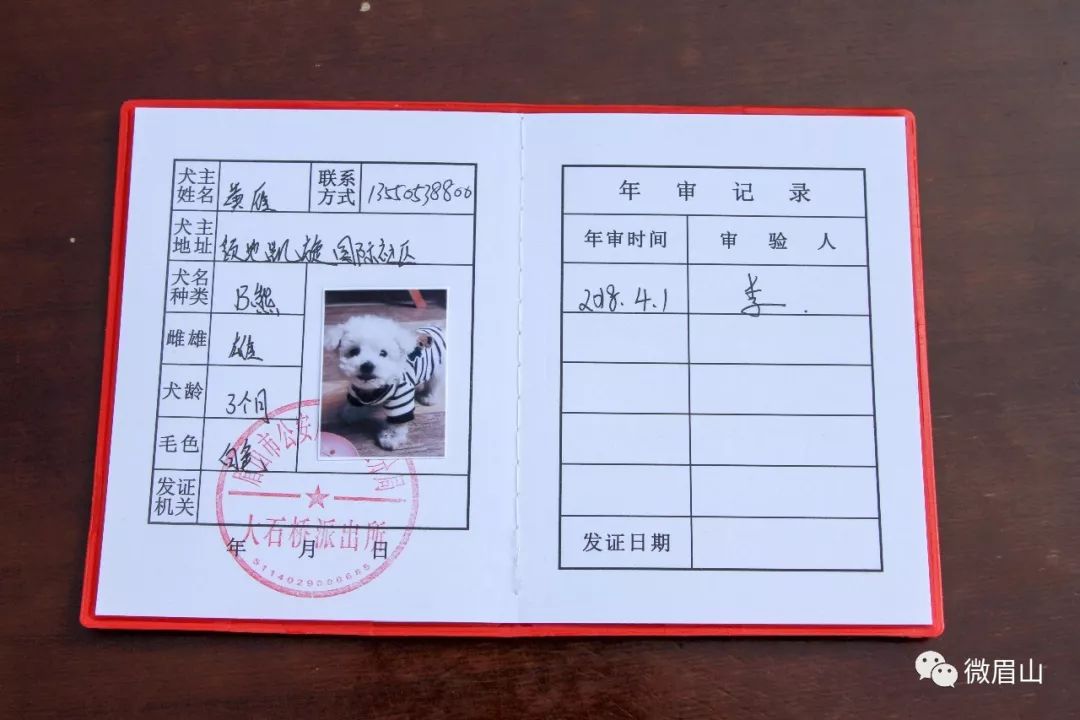 犬主姓名 黄雁 联系方式 13550538800
犬主地址 领地凯旋国际社区
犬名种类 比熊
雌雄 雄
犬龄 3个月
毛色 白色
发证机关
大石桥派出所
5114029000685
年 月 日
年审记录
年审时间 审验人
2018.4.1 李
发证日期
微眉山